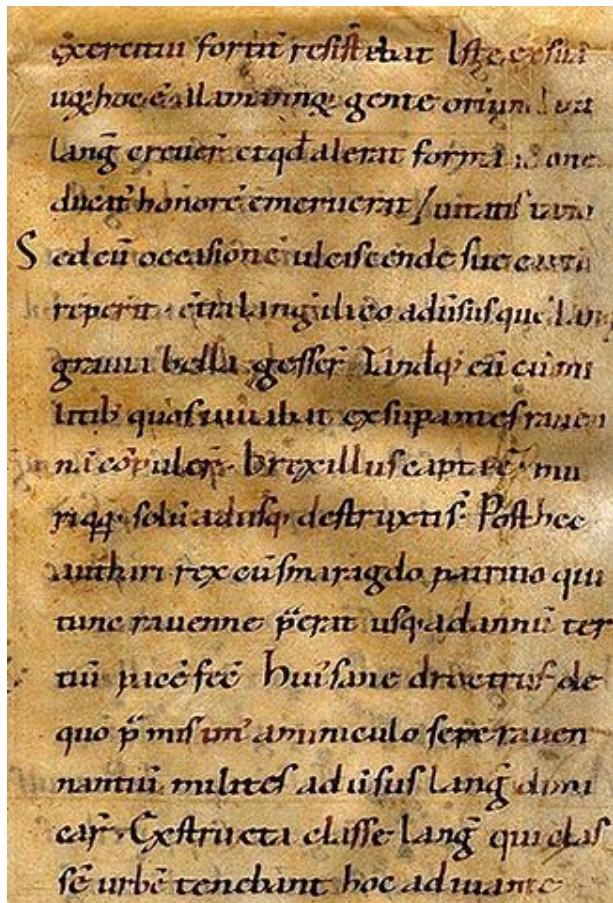 exercitui fortit̃ resist ebat Iste ex sua
uoꝝ hoc ē alamannoꝝ gente oriun
lang̃ creuer̃ et qđ alerat forma one
ducat᷒ honorē emeruerat
Sed cū occasionē ulciscende sue capti
reperit c̄tra lang̃ ilico aduſus que lang
grauia bella gesser̃ Tandē q; eū cū mi
litib᷒ quos iuuabat exsupantes rauen
nā cōpuler̃. brexillus capta ē. mu
riqꝫ solū adusq; destruxti s̃. Post hec
authari rex cū smaragdo patritio qui
tunc rauenne p̄erat usq; ad annū ter
tiū pacē fec̄ hui᷒ sane droctrus de
quo p̄misim᷒ aminiculo sepe rauen
nantiū milites aduſus lang̃ dimi
car̃. Exstructa classe lang̃ qui clas
sē urbē tenebant hoc adiuuante